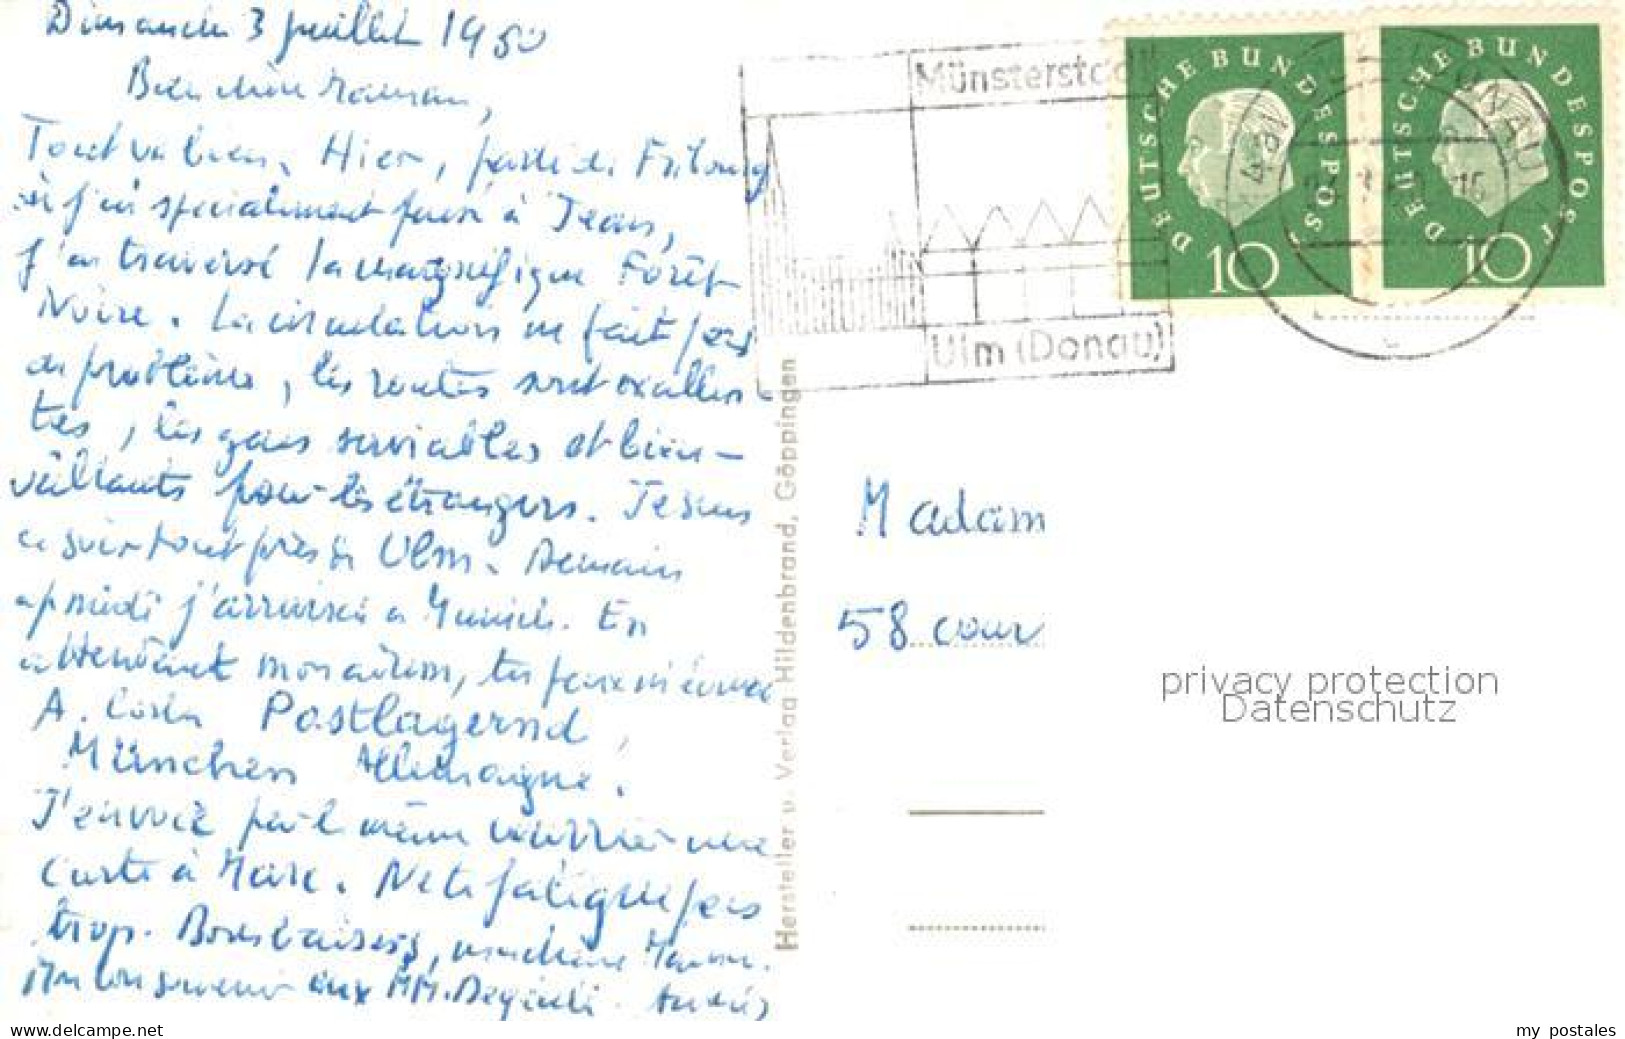 Dimanche 3 juillet 1960
Bien chère maman,
Tout va bien. Hier, parti de Fribourg
où j'ai spécialement pensé à Jean,
j'ai traversé la magnifique Forêt
Noire. La circulation ne fait pas
de problème, les routes sont excellen-
tes, les gens serviables et bien-
veillants pour les étrangers. Je suis
ce soir tout près de Ulm. Demain
après midi j'arriverai à Munich. En
attendant mon adresse, tu peux m'écrire
A. Postlagernd,
München Allemagne.
J'envoie par le même courrier une
carte à Marc. Ne te fatigue pas
trop. Bons baisers, ma chère Maman.
Mon bon souvenir aux MM. André
Hersteller u. Verlag Hildenbrand, Göppingen
Münsterstadt
Ulm (Donau)
DEUTSCHE BUNDESPOST
10
DEUTSCHE BUNDESPOST
10
Madam
58 cour
privacy protection
Datenschutz
www.delcampe.net
my postales